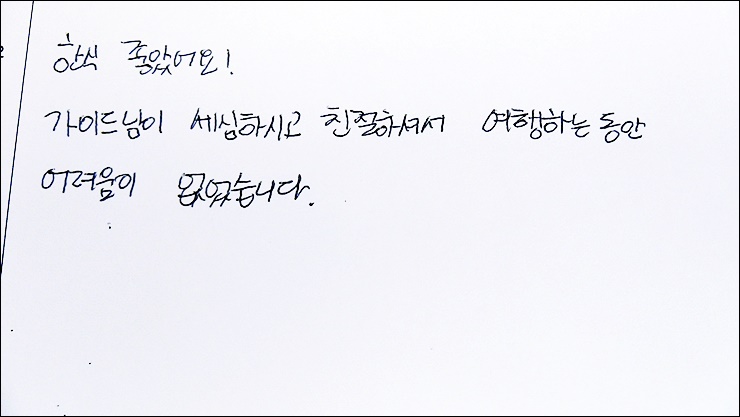 한식 좋았어요!
가이드님이 세심하시고 친절하셔서 여행하는 동안
어려움이 없었습니다.